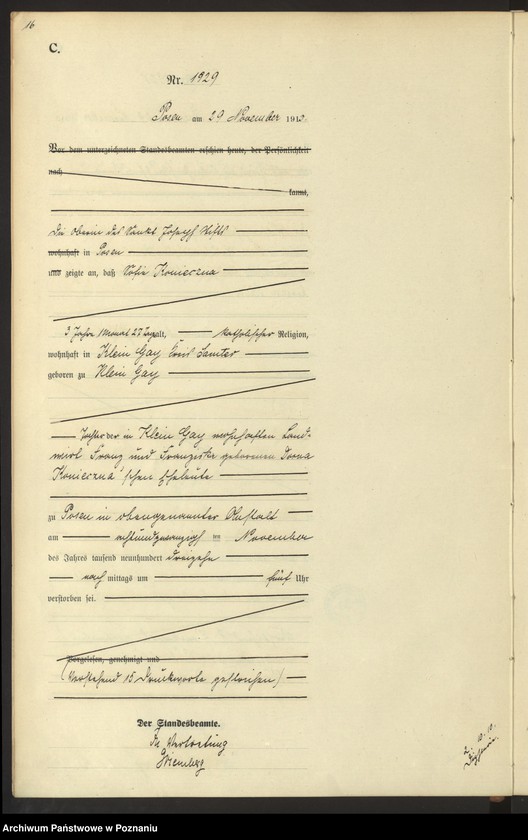 16
C.
Nr. 1929
Posen am 29 November 191
Vor dem unterzeichneten Standesbeamten erschien heute, der Persönlichkeit
nach
kannt,
Die Oberin des Sankt Joseph Stifts
wohnhaft in Posen
und zeigte an, daß Sofie Konieczna
3 Jahre 1 Monat alt, katholischer Religion,
wohnhaft in Klein Gay Kreis Samter
geboren zu Klein Gay
Tochter der in Klein Gay wohnhaften Land-
wirt Franz und Franziska geborenen
Konieczna'schen Eheleute
zu Posen in obengenannter Anstalt
am achtundzwanzigsten November
des Jahres tausend neunhundert dreizehn
nach mittags um fünf Uhr
verstorben sei.
Vorgelesen, genehmigt und
(Vorstehend 15 Druckworte gestrichen)
Der Standesbeamte.
In Vertretung
Archiwum Państwowe w Poznaniu